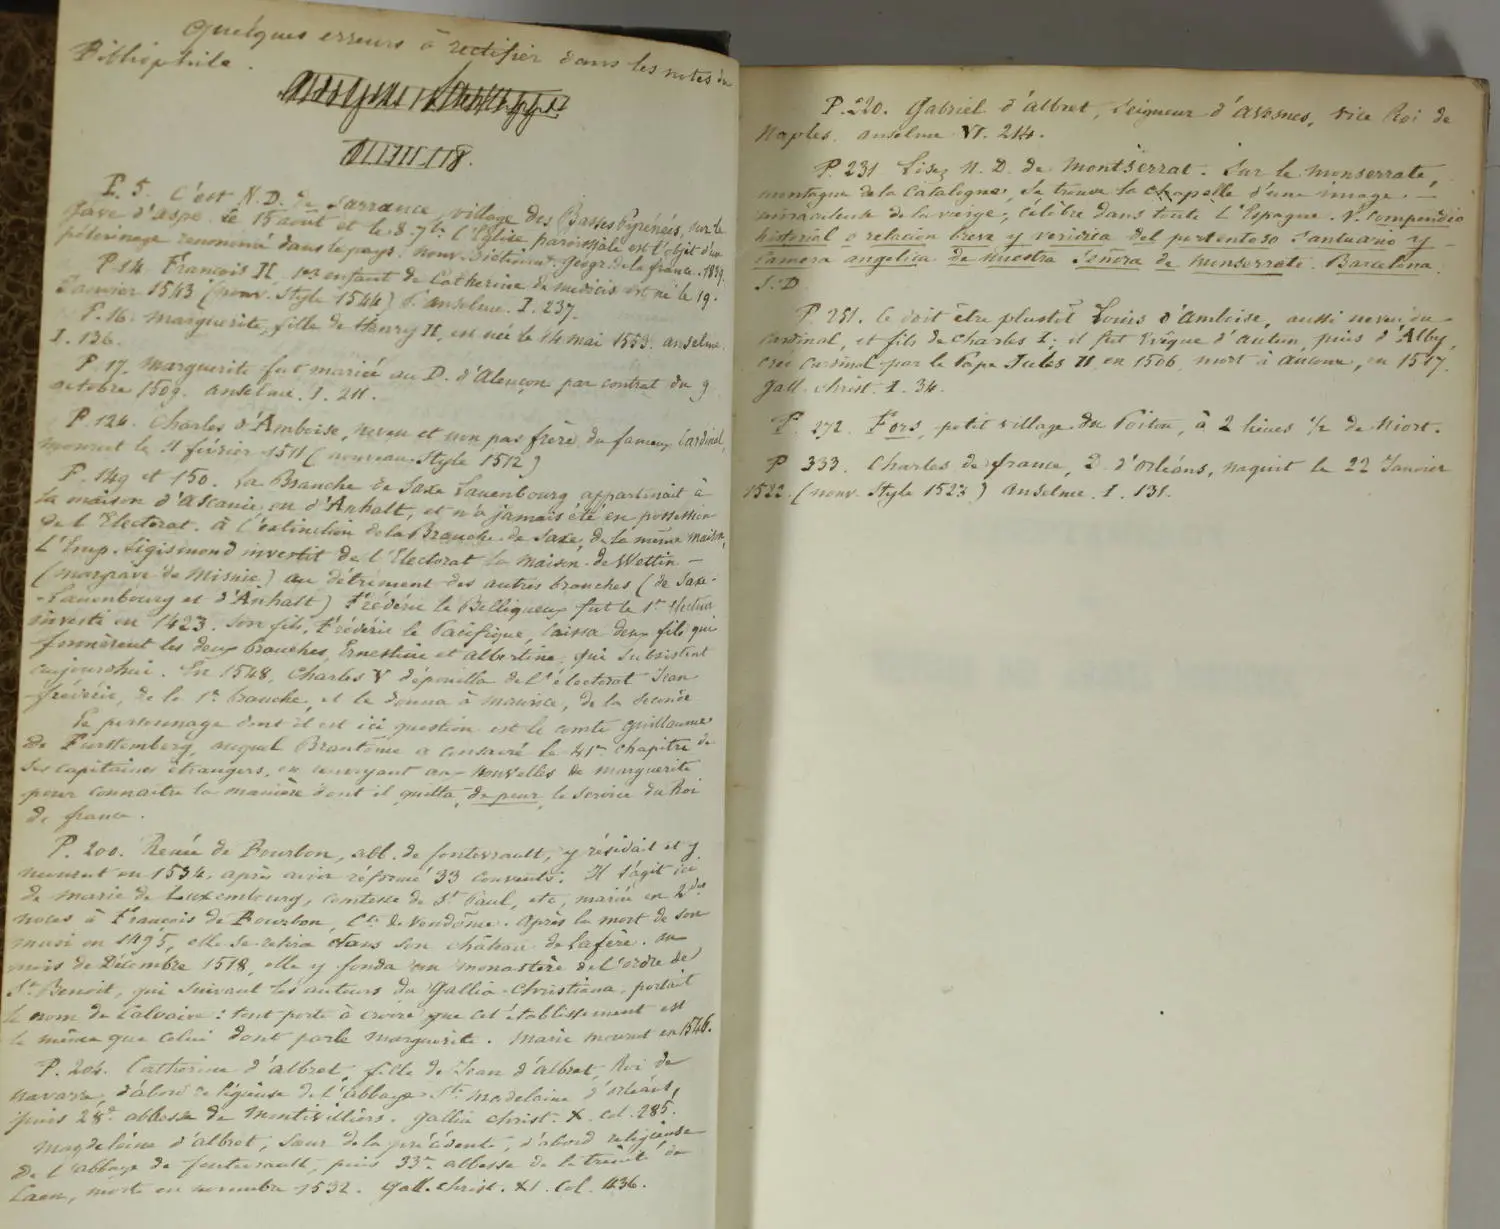 Quelques erreurs à rectifier dans les notes du
Bibliophile.
P. 5. C'est N. D. de Sarrance, village des Basses Pyrénées, sur le
Gave d'Aspe. Le 15 août et le 8 7bre l'Eglise paroissiale est l'objet d'un
pélerinage renommé dans le pays. Nouv. Dictionn. Géogr. de la france. 1839.
P. 14. François II, 1er enfant de Catherine de médicis est né le 19.
Janvier 1543 (nouv. Style 1544) P. anselme. I. 237.
P. 16. Marguerite, fille de Henry II, est née le 14 mai 1553. anselme.
I. 136.
P. 17. Marguerite fut mariée au D. d'Alençon par contrat du 9
octobre 1509. anselme. I. 211.
P. 124. Charles d'Amboise, neveu et non pas frère du fameux Cardinal,
mourut le 11 février 1511 (nouveau Style 1512)
P. 149 et 150. La Branche de Saxe Lauenbourg appartenait à
la maison d'Ascanie ou d'Anhalt, et n'a jamais été en possession
de l'Electorat. à l'extinction de la Branche de Saxe, de la même maison,
L'Emp. Sigismond investit de l'Electorat la Maison de Wettin –
(margrave de Misnie) au détriment des autres branches (de Saxe-
-Lauenbourg et d'Anhalt) Frédéric le Belliqueux fut le 1er électeur
investi en 1423. Son fils, Frédéric le Pacifique, laissa deux fils qui
formèrent les deux branches, Ernestine et albertine, qui subsistent
aujourd'hui. En 1548, Charles V dépouilla de l'électorat Jean
frédéric, de la 1re branche, et le donna à maurice, de la seconde
Le personnage dont il est ici question est le comte guillaume
de Furstemberg, auquel Brantôme a consacré le 41me chapitre de
ses capitaines étrangers, en renvoyant aux Nouvelles de marguerite
pour connaître la manière dont il quitta, de peur, le service du Roi
de france.
P. 200. Renée de Bourbon, abb. de fontevrault, y résidait et y
mourut en 1534, après avoir réformé 33 couvents. Il s'agit ici
de marie de Luxembourg, comtesse de St Paul, etc, mariée en 2des
noces à François de Bourbon, Cte de Vendôme. Après la mort de son
mari en 1495, elle se retira dans son château de la fère. au
mois de Décembre 1518, elle y fonda un monastère de l'ordre de
St Benoit, qui suivant les auteurs du Gallia Christiana, portait
le nom de Calvaire: tout porte à croire que cet établissement est
le même que celui dont parle marguerite. Marie mourut en 1546.
P. 204. Catherine d'albret, fille de Jean d'albret, Roi de
navarre, d'abord religieuse de l'abbaye Ste Madelaine d'orléans,
puis 28e abbesse de Montivilliers. Gallia christ. X. col. 285.
Magdeleine d'albret, Sœur de la précédente, d'abord religieuse
de l'abbaye de fontevrault, puis 33e abbesse de la trinité de
Caen, morte en novembre 1532. Gall. Christ. XI. Col. 436.
P. 220. Gabriel d'albret, Seigneur d'avesnes, vice Roi de
Naples. anselme VI. 214.
P. 231 Lisez N. D. de MontSerrat. Sur le monserrate,
montagne de la Catalogne, se trouve la chapelle d'une image –
miraculeuse de la vierge, célèbre dans toute l'Espagne. V. Compendio
historial o relacion breve y veridica del portentoso Santuario y –
Camera angelica de Nuestra Senora de Monserrate. Barcelona.
S. D.
P. 251. Ce doit être plustôt Louis d'amboise, aussi neveu du
Cardinal, et fils de Charles I; il fut Evêque d'autun, puis d'Alby,
créé Cardinal par le Pape Jules II en 1506, mort à ancone, en 1517.
Gall. christ. I. 34.
P. 272. Fors, petit village du Poitou, à 2 lieues 1/2 de Niort.
P. 333. Charles de france, D. d'orléans, naquit le 22 Janvier
1522. (nouv. Style 1523) Anselme. I. 131.